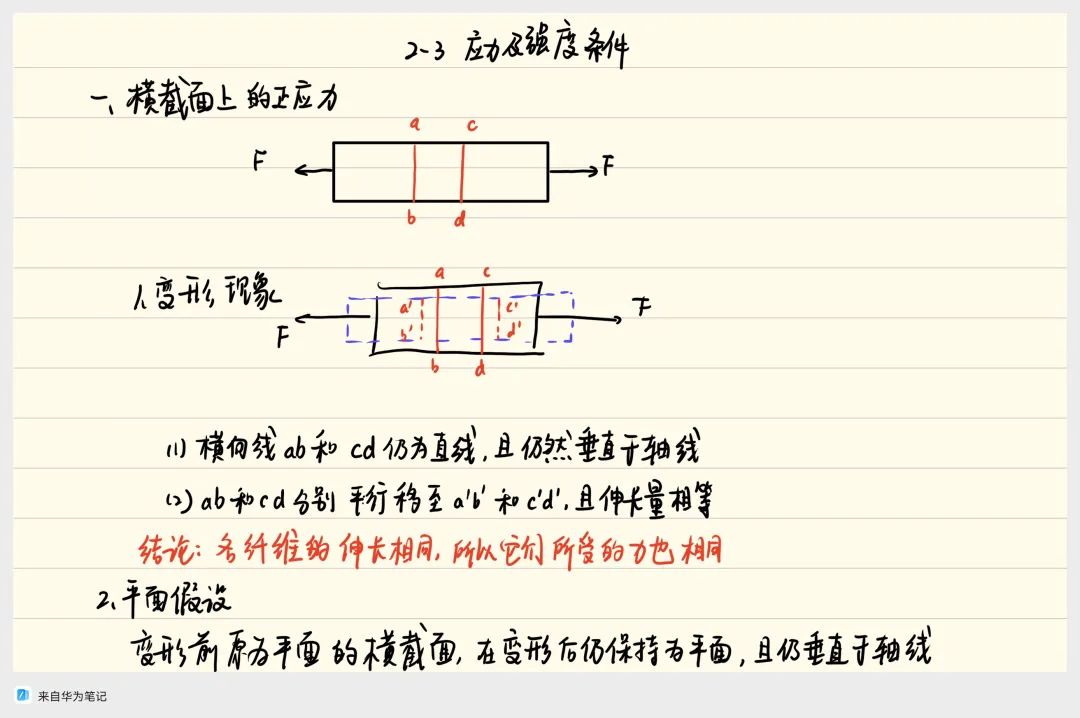 2-3 应力及强度条件
一、横截面上的正应力
a c
F F
b d
1、变形现象
a c
a' c'
F F
b' d'
b d
(1) 横向线ab和cd仍为直线,且仍然垂直于轴线
(2) ab和cd分别平行移至a'b'和c'd',且伸长量相等
结论:各纤维的伸长相同,所以它们所受的力也相同
2、平面假设
变形前原为平面的横截面,在变形后仍保持为平面,且仍垂直于轴线
来自华为笔记